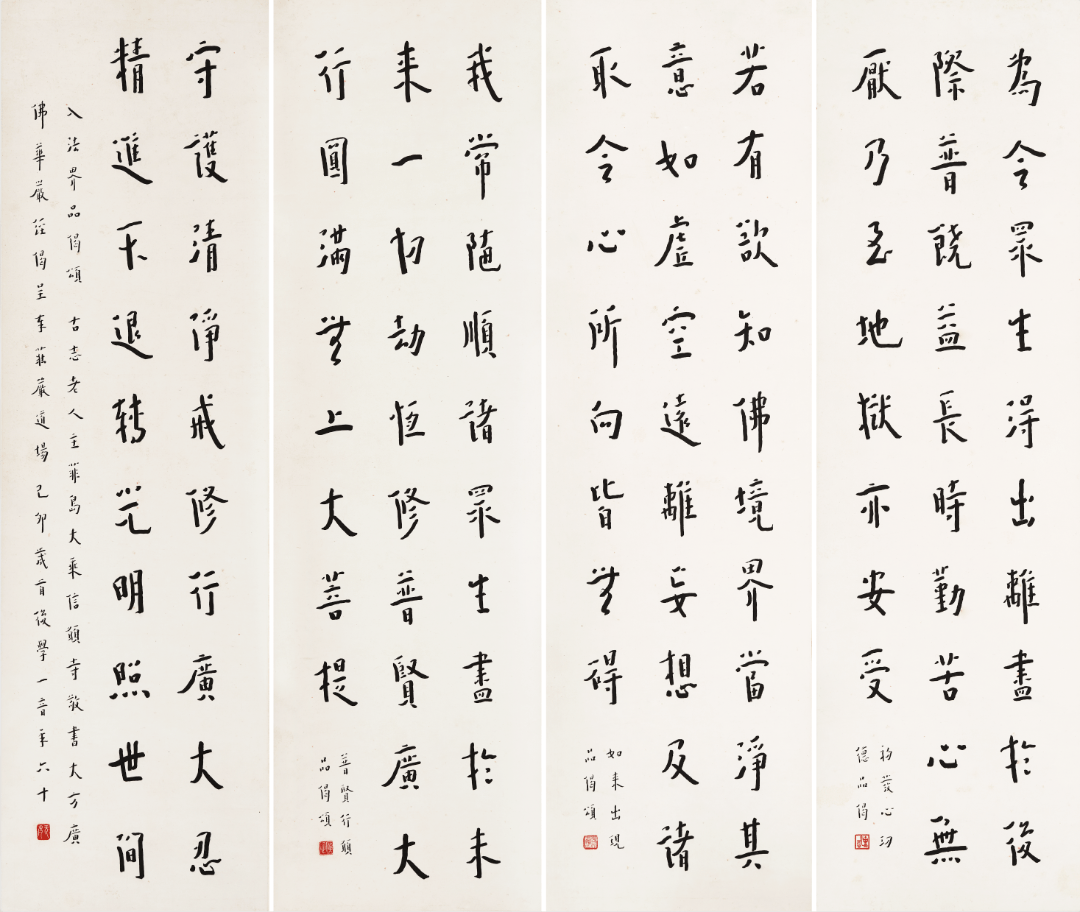 為令眾生得出離盡於後
際普饒益長時勤苦心無
厭乃至地獄亦安受
初發心功
德品偈
若有欲知佛境界當淨其
意如虛空遠離妄想及諸
取令心所向皆無礙
如來出現
品偈頌
我常隨順諸眾生盡於未
來一切劫恆修普賢廣大
行圓滿無上大菩提
普賢行願
品偈頌
守護清淨戒修行廣大忍
精進不退轉光明照世間
入法界品偈頌 古志老人主菲島大乘信願寺敬書大方廣
佛華嚴經偈呈奉莊嚴道場 己卯歲首後學一音年六十